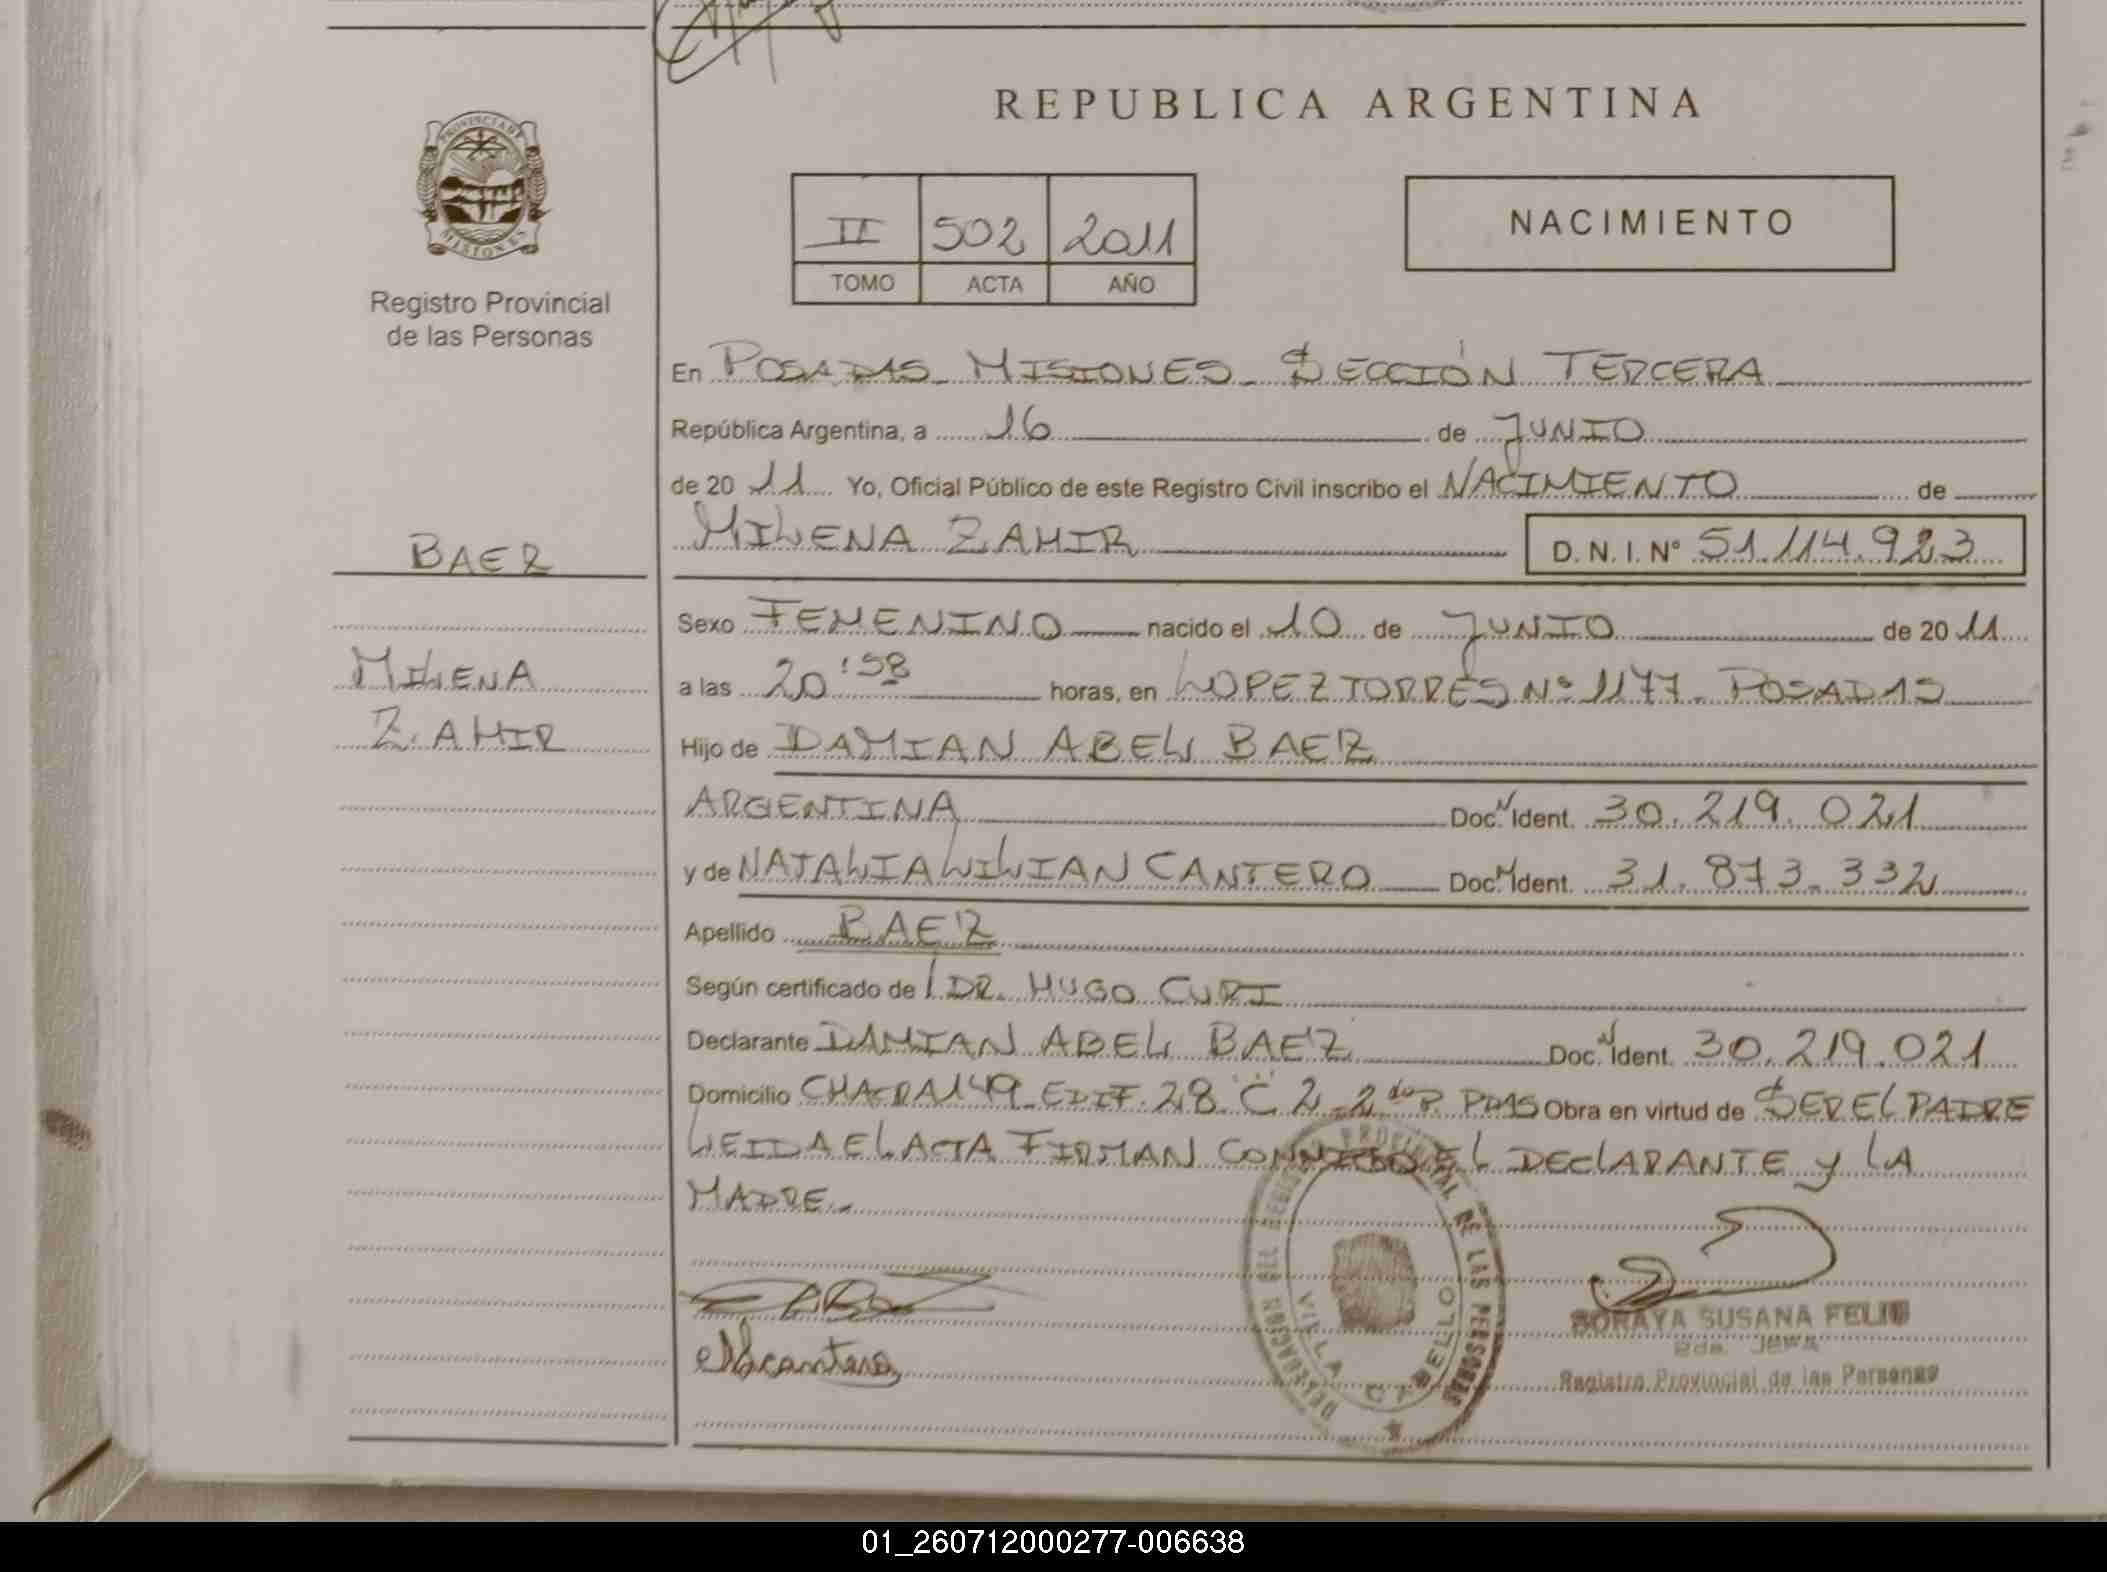 REPUBLICA ARGENTINA
PROVINCIA DE
MISIONES
Registro Provincial
de las Personas
II 502 2011
TOMO ACTA AÑO
NACIMIENTO
En POSADAS MISIONES SECCIÓN TERCERA
República Argentina, a 16 de JUNIO
de 20 11 Yo, Oficial Público de este Registro Civil inscribo el NACIMIENTO de
MILENA ZAHIR D. N. I. Nº 51.114.923
BAER
MILENA
ZAHIR
Sexo FEMENINO nacido el 10 de JUNIO de 20 11
a las 20:58 horas, en LOPEZ TORRES Nº 1177 POSADAS
Hijo de DAMIAN ABEL BAEZ
ARGENTINA Doc. N Ident. 30.219.021
y de NATALIA LILIAN CANTERO Doc. N Ident. 31.873.332
Apellido BAEZ
Según certificado de DR. HUGO CURI
Declarante DAMIAN ABEL BAEZ Doc. N Ident. 30.219.021
Domicilio CHACRA 149 EDIF. 28 "C" 2 2do P. PDAS Obra en virtud de SER EL PADRE
LEIDA EL ACTA FIRMAN CONMIGO EL DECLARANTE Y LA
MADRE
NLcantero
DELEGACION DEL REGISTRO PROVINCIAL DE LAS PERSONAS
VILLA CABELLO
SORAYA SUSANA FELIU
Registro Provincial de las Personas
01_260712000277-006638